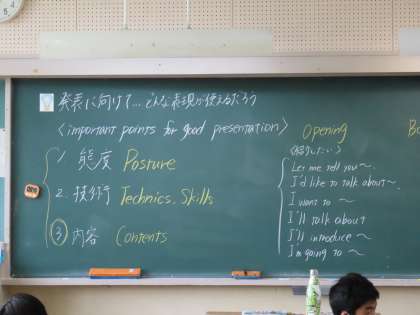 発表に向けて…どんな表現が使えるだろう
<important points for good presentation>
1. 態度 Posture
2. 技術 Technics, Skills
③ 内容 Contents
Opening
Let me tell you〜.
I'd like to talk about〜.
I want to 〜
I'll talk about
I'll introduce 〜
I'm going to 〜